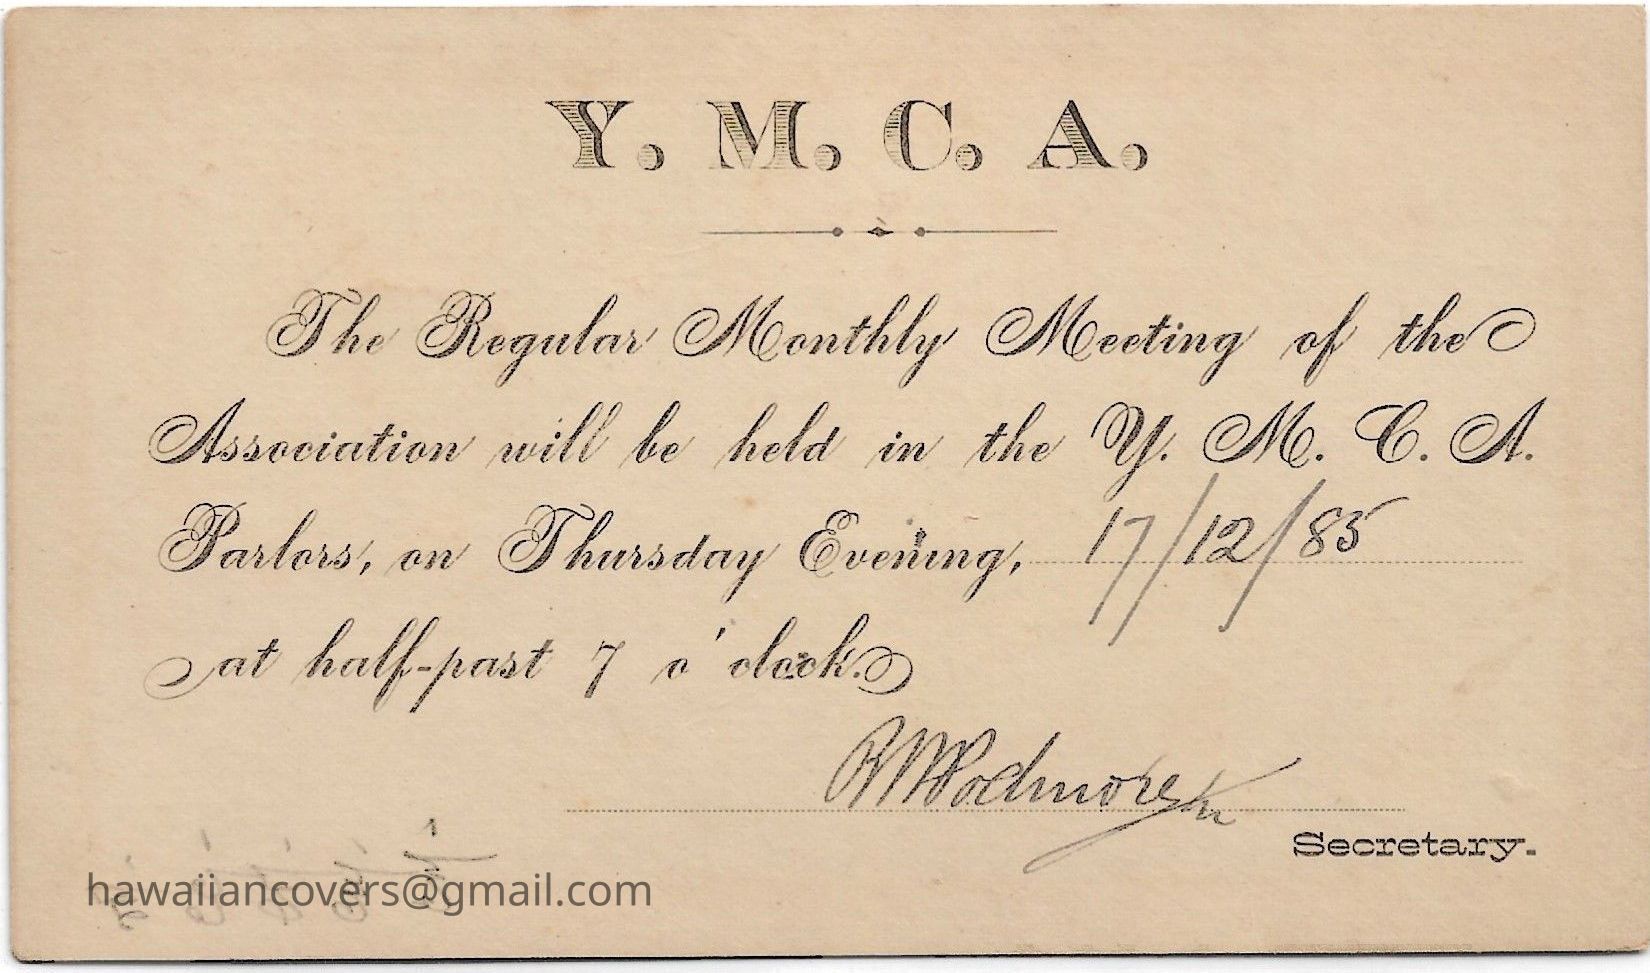 Y. M. C. A.
The Regular Monthly Meeting of the
Association will be held in the Y. M. C. A.
Parlors, on Thursday Evening, 17/12/85
at half-past 7 o'clock.
Podmore
Secretary.
hawaiiancovers@gmail.com